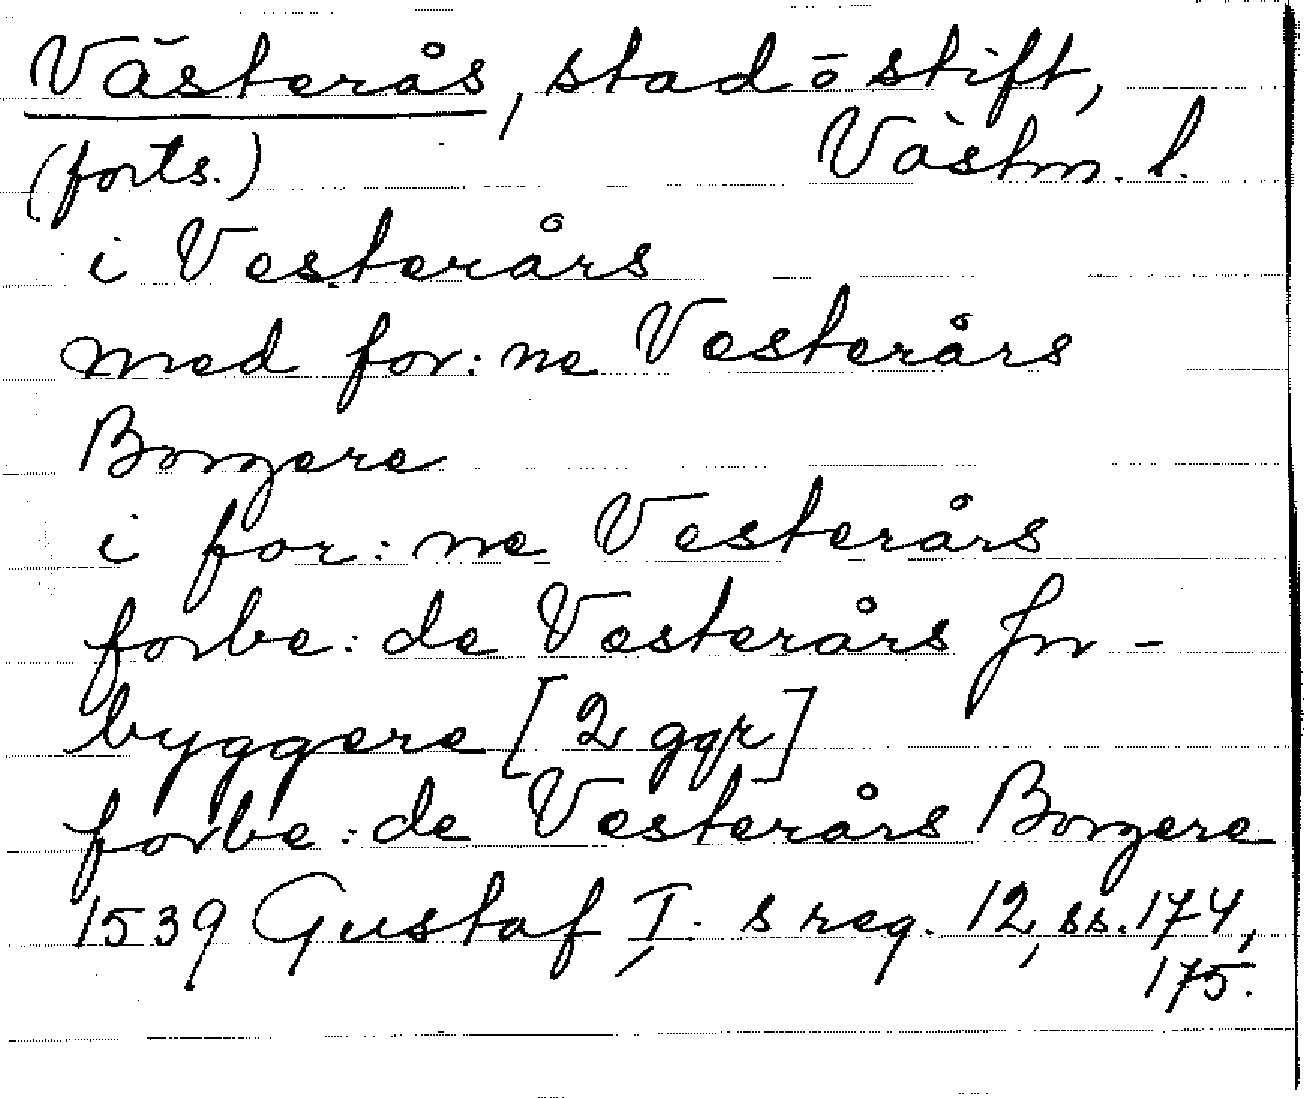 Västerås, stad o stift,
(forts.) Västm. l.
i Vesterårs
med for:ne Vesterårs
Borgere
i for:ne Vesterårs
forbe:de Vesterårs for-
byggere [2 ggr]
forbe:de Vesterårs Borgere
1539 Gustaf I:s reg. 12, ss. 174,
175.